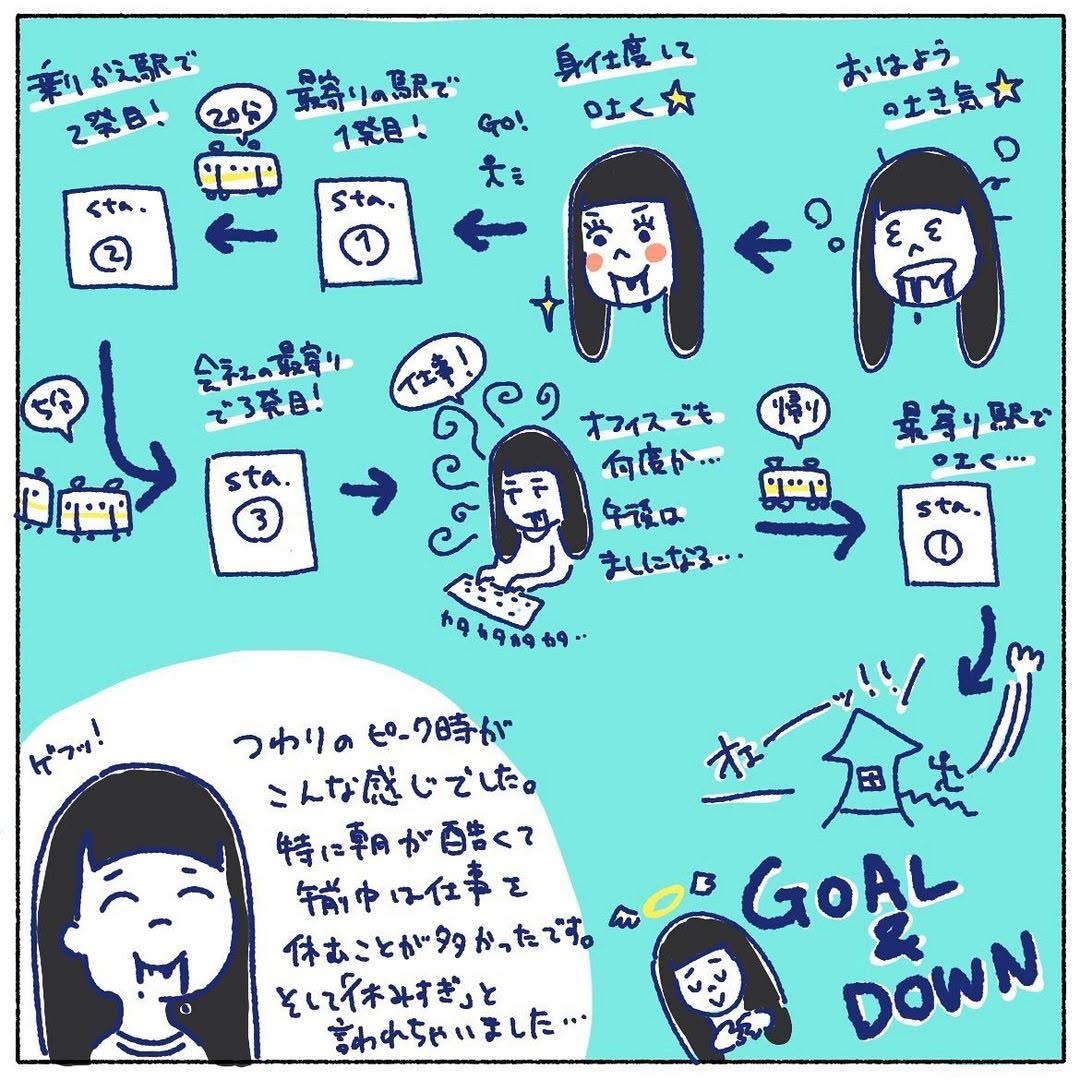 おはよう
吐き気
身仕度して
吐く
GO!
最寄りの駅で
1発目!
sta.
1
20分
乗りかえ駅で
2発目!
sta.
2
5分
会社の最寄り
で3発目!
sta.
3
仕事!
カタカタカタカタ..
オフィスでも
何度か...
午後は
ましになる...
帰り
最寄り駅で
吐く...
sta.
1
オエーッ!!
GOAL
&
DOWN
ゲフッ!
つわりのピーク時が
こんな感じでした。
特に朝が酷くて
午前中は仕事を
休むことが多かったです。
そして「休みすぎ」と
言われちゃいました...